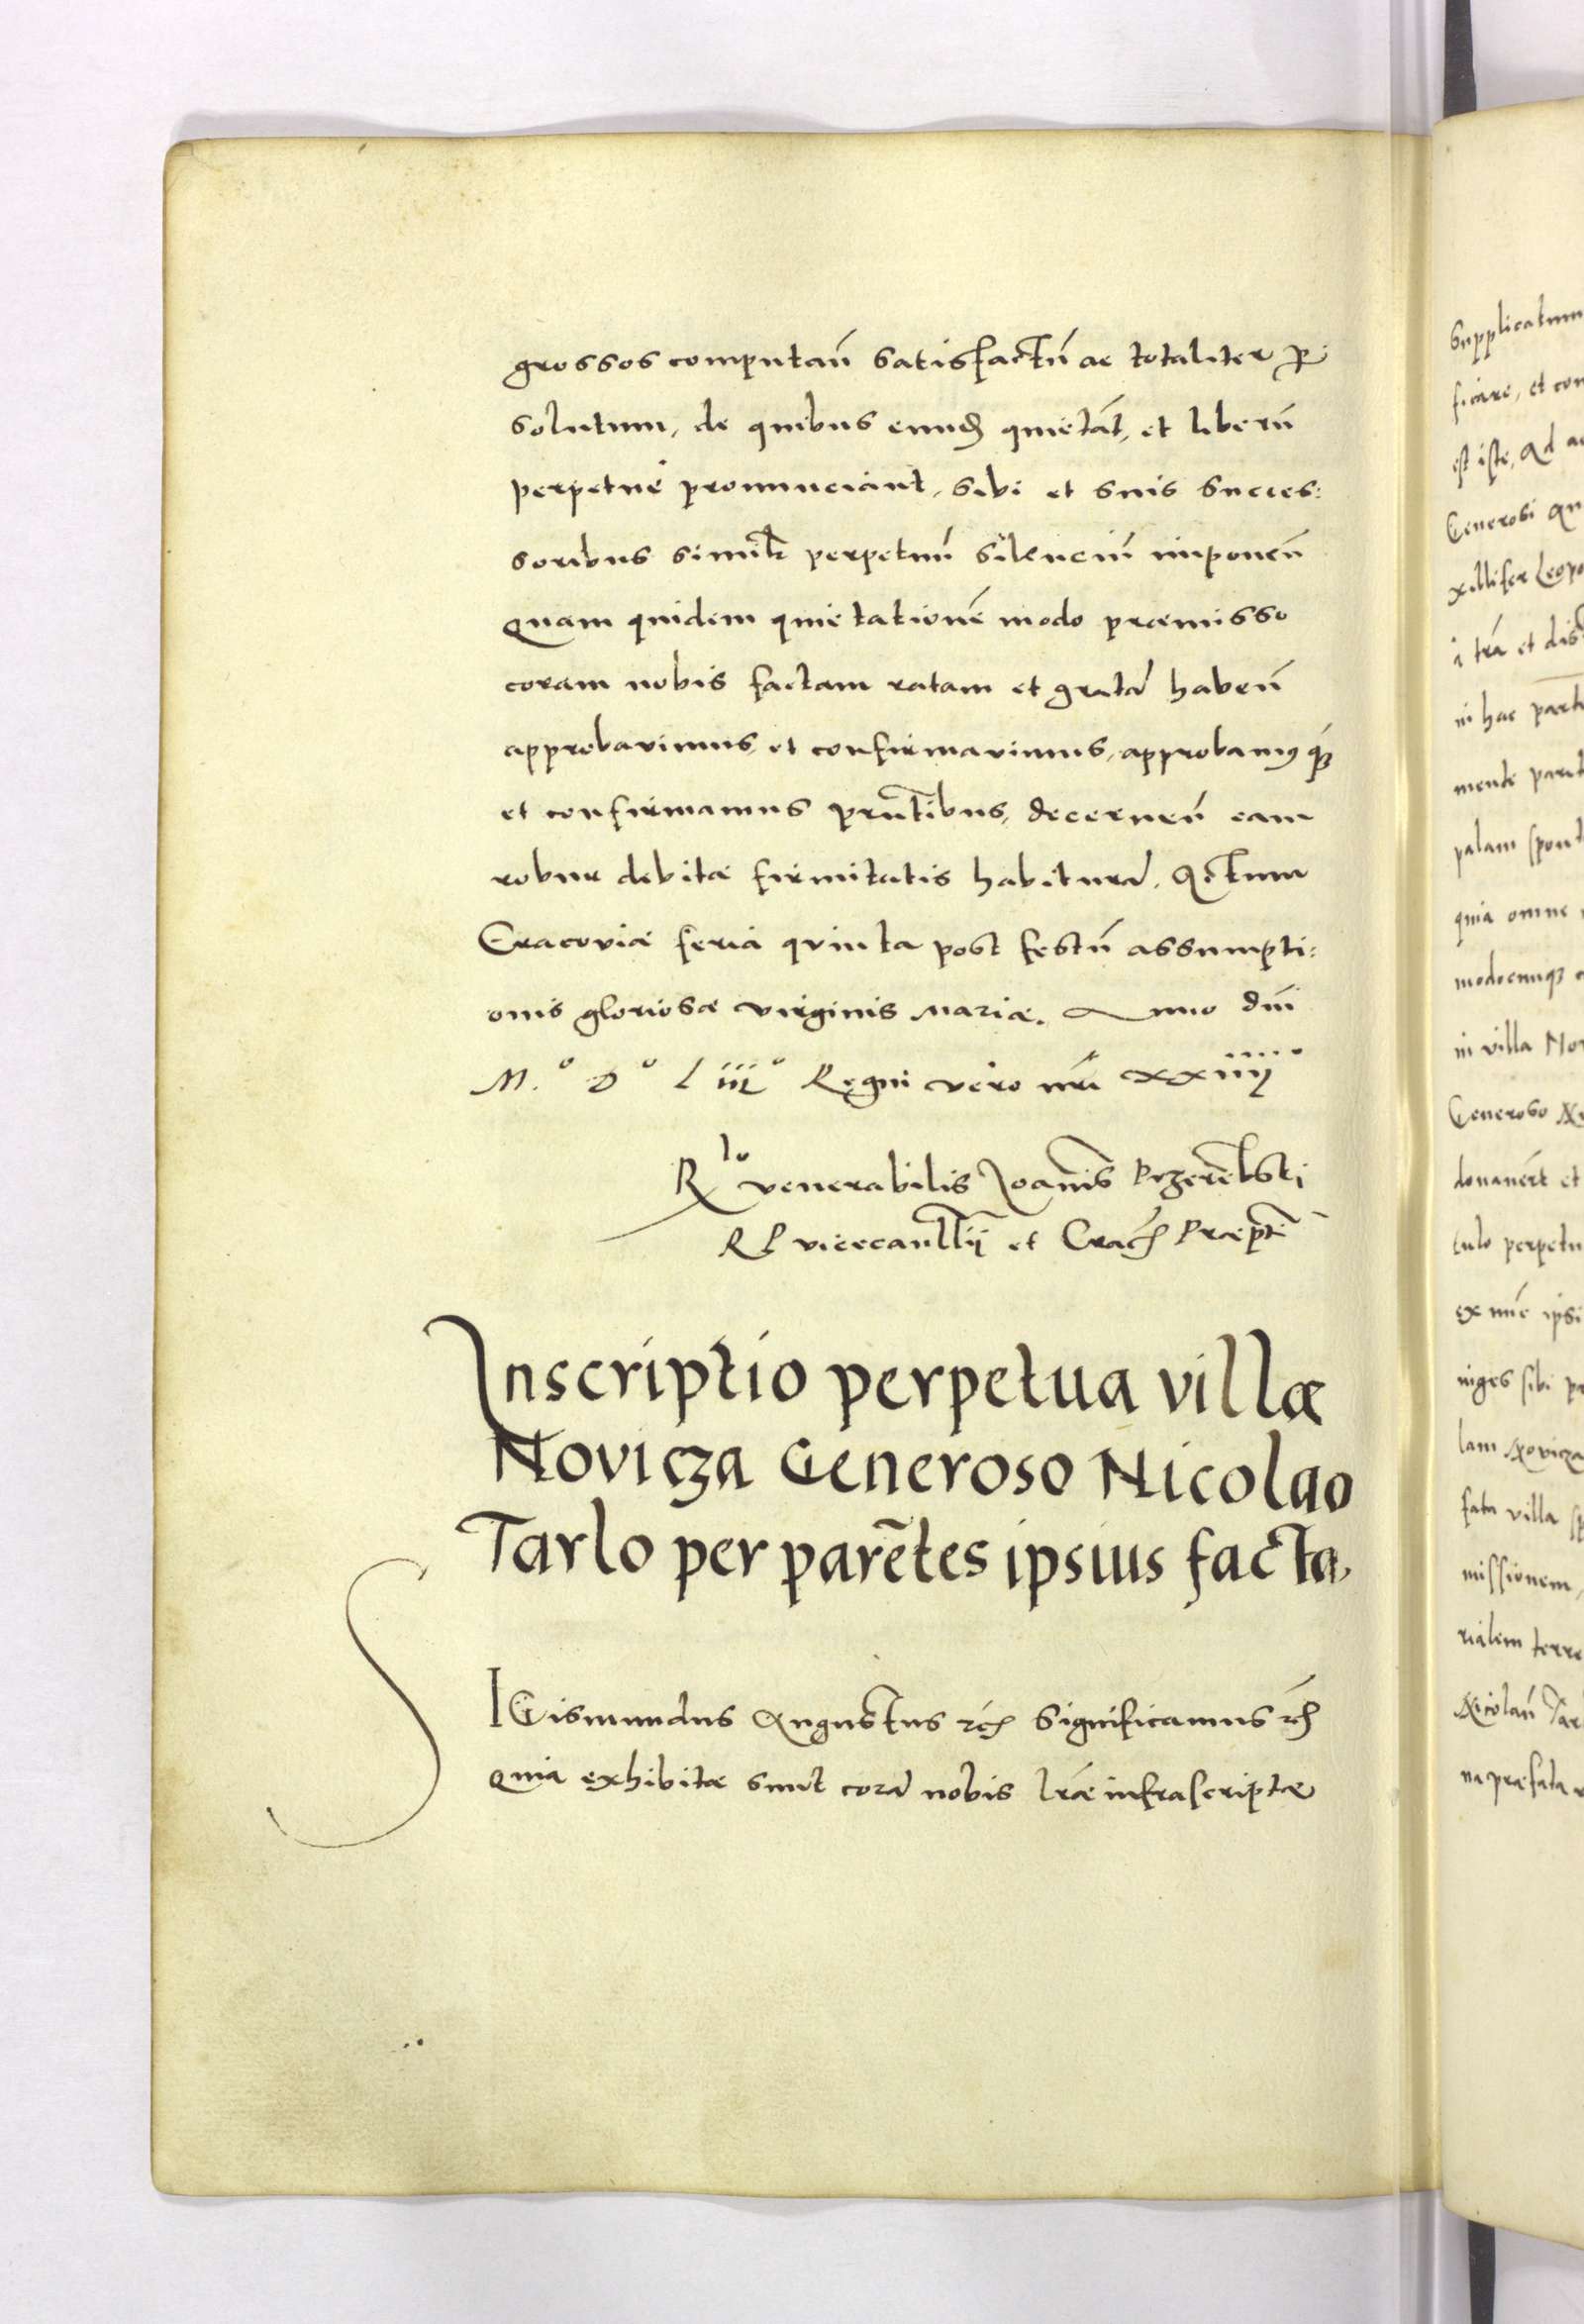 grossos computan̄ satisfactū ac totaliter ꝑ
solutum, de quibus eundē quietāt, et liberū
perpetue pronunciant, sibi et suis succes:
soribus similr̄ perpetuū silenciū imponen̄
Quam quidem quietationē modo praemisso
coram nobis factam ratam et gratā haben̄
approbavimus, et confirmavimus, approbamusqꝫ
et confirmamus pn̄tibus, decernen̄ eam
robur debitae firmitatis habiturā. Actum
Cracoviae feria quinta post festū assumpti:
onis gloriosae virginis Mariae. Anno dni
M.º Dº L iiiº Regni vero nrī xxiiii
Rlo venerabilis Joannis Przerēbski
R P vicecancllrii et Crac̄ Praeptī
Inscriptio perpetua villae
Novicza Generoso Nicolao
Tarlo per parētes ipsius facta.
SIGismundus Augustus rc̄ Significamus rc̄
Quia exhibitae sunt corā nobis lrae infrascriptae
Supplicatum
ficare, et con
est iste, Ad ac
Generosi An
xillifer Leopo
in hac parte
mente parit
palam spont
quia omne
modocunqꝫ
in villa Nov
Generoso
donaverūt et
tulo perpetu
ex nūc ipsi
iuges sibi
lam Novicza
fata villa
missionem,
rialem terre
Nicolaū Tar
na praefata